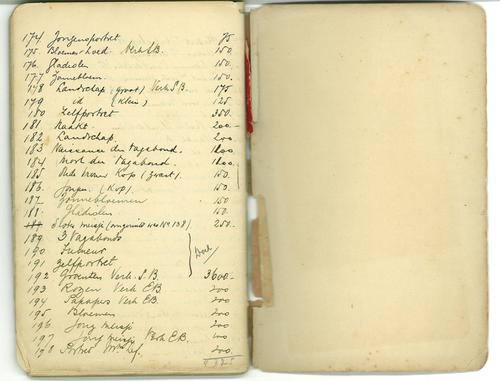 174 Jongensportret 75
175. Bloemen-hoed. Verk S.B. 150.
176. Gladiolen 150.
177 Zonnebloem. 150.
178 Landschap (groot) Verk S.B. 175
179 id (Klein) 125
180 Zelfportret 350.
181 Naakt. 200.-
182 Landschap. 200
183 Naissance du Vagabond.
184 Mort du Vagabond.
185 Oude vrouw Kop (zwart). 150.
186. Jongen. (Kop). 150.
187 Zonnebloemen 150
188. Gladiolen 150.
meisje 250.-
189 3 Vagabonds
190 Fumeur
191 Zelfportret
192 Groenten Verk. S.B. 3600-
193 Rozen Verk E.B. 200
194 Papavers Verk E.B. 200
195 Bloemen 200
196 Jong meisje 200
197 Jong meisje Verk E.B.
198 Portret 200.